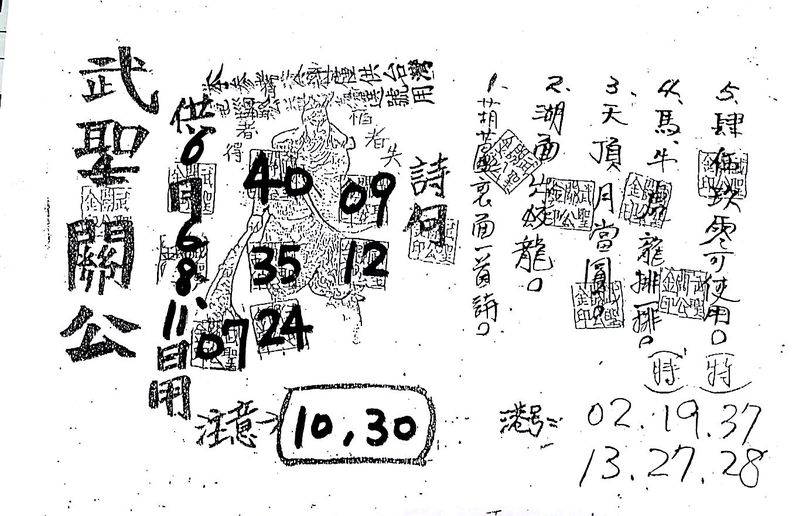 武聖關公
供6月6.8.11.日用
40 09
35 12
07 24
注意→ 10,30
詩句
1.葫蘆裏面一首詩。
2.湖面出蛟龍。
3.天頂月當圓。
4.馬牛虎龍排一排。(時)
5.肆伍玖零可使用。(特)
港号=02.19.37
13.27.28